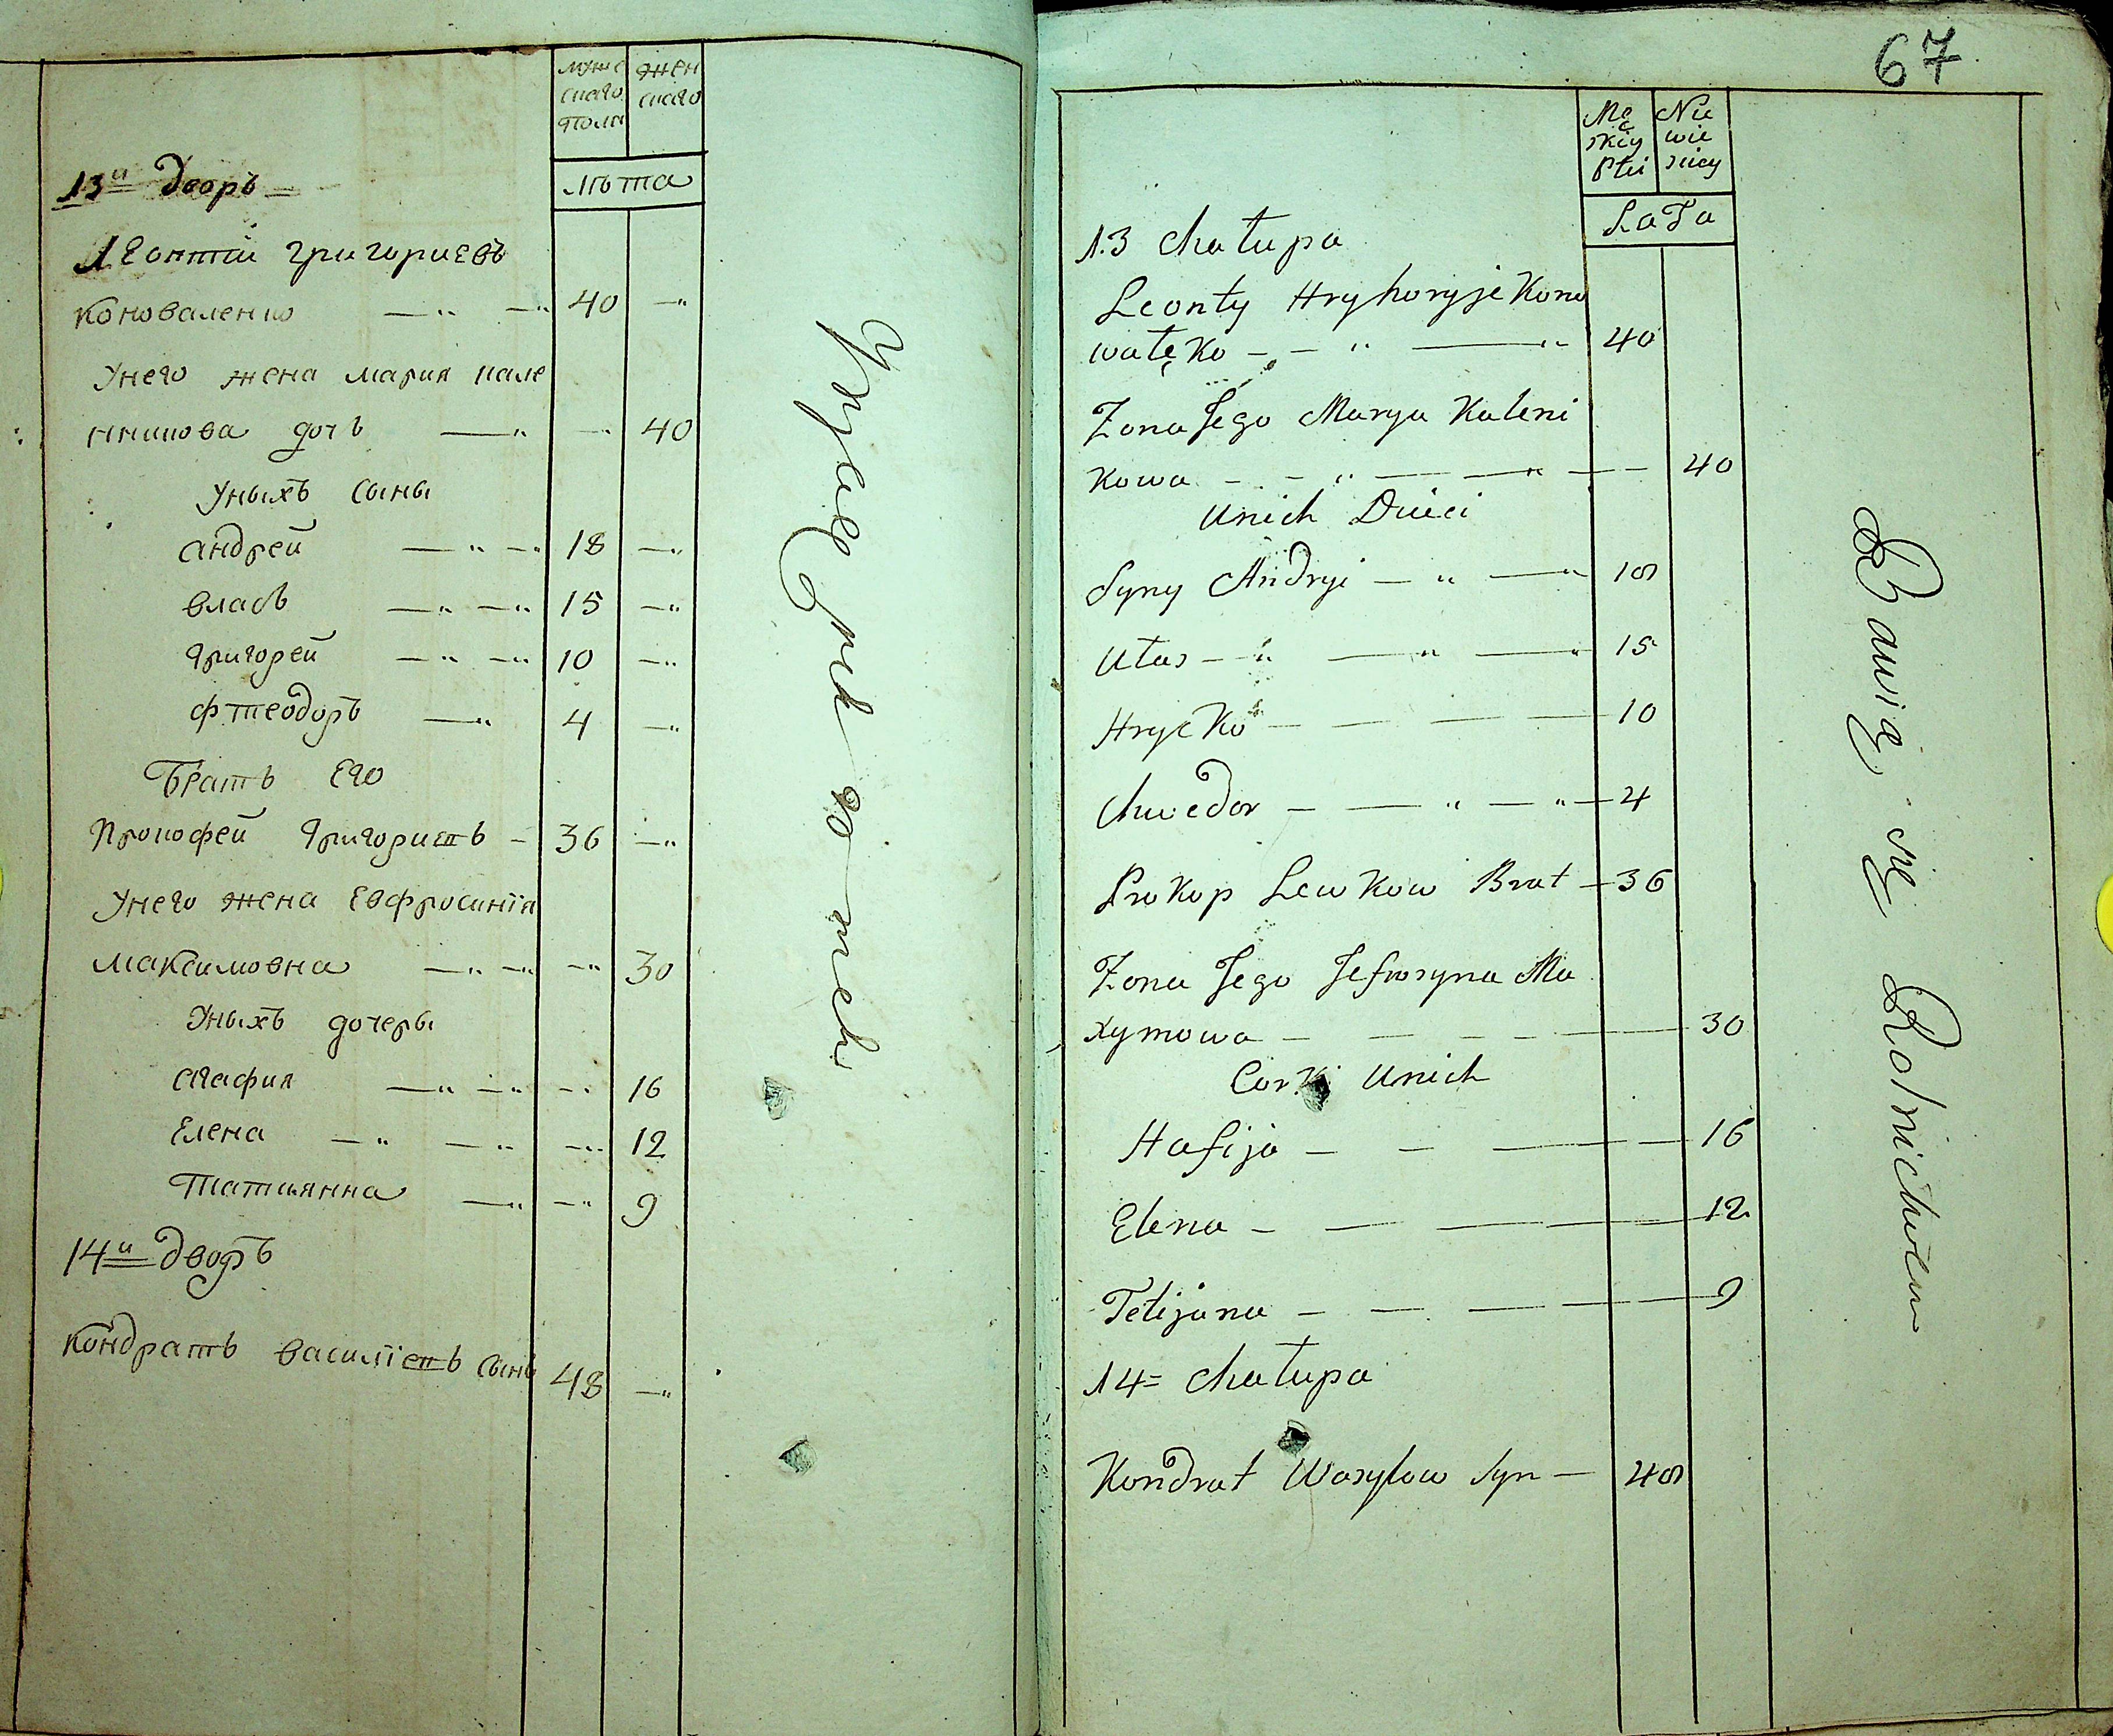 муже
скаго
пола
жен
скаго
лѣта
13й дворъ
Леонтій григориевъ
коноваленко 40
Унего жена мария кале
нникова дочь 40
Уныхъ сыны
андрей 18
власъ 15
григорей 10
фтеодоръ 4
братъ Его
Прокофей григориевъ 36
Унего жена Евфросинія
максимовна 30
Уныхъ дочеры
агафия 16
Елена 12
Татиянна 9
14й дворъ
Кондратъ василіевъ сынъ 48
67
Mę
skiey
Płci
Nie
wie
sciey
LaTa
13 Chałupa
Leonty Hryhoryje Kono
wałęko 40
Zona Jego Marya Kaleni
kowa 40
Unich Dzieci
Syny Andryi 18
Ułas 15
Hrycko 10
Chwedor 4
Prokop Lewkow Brat 36
Zona Jego Jefrosyna Ma
xymowa 30
Corki Unich
Hafija 16
Elena 12
Tetijana 9
14= Chałupa
Kondrat Wasylow Syn 48
Bawią się Rolnictwem